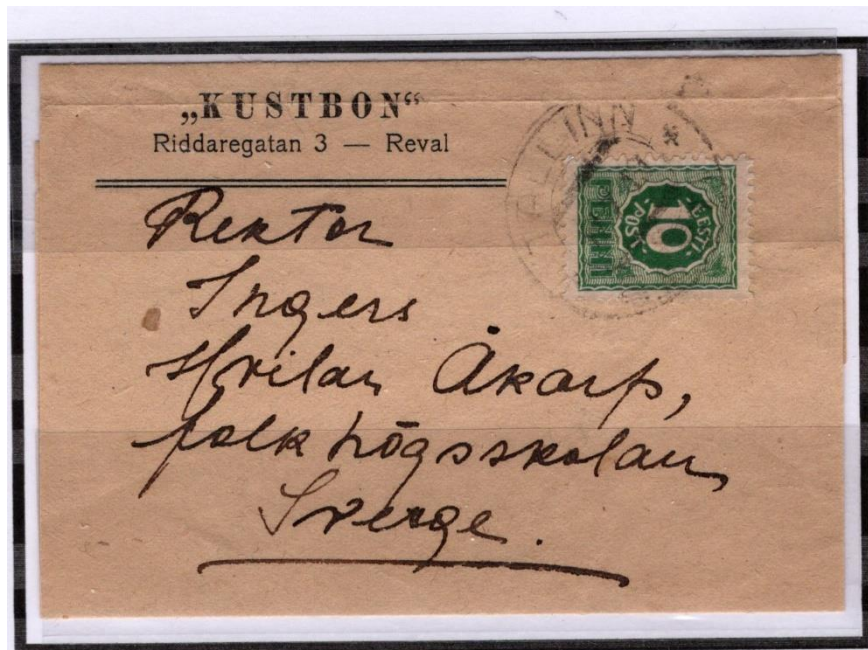 „KUSTBON“
Riddaregatan 3 — Reval
TALLINN
EESTI
POST
10
PENNI
Rektor
Ingers
Hvilan Åkarp,
folkhögsskolan,
Sverge.